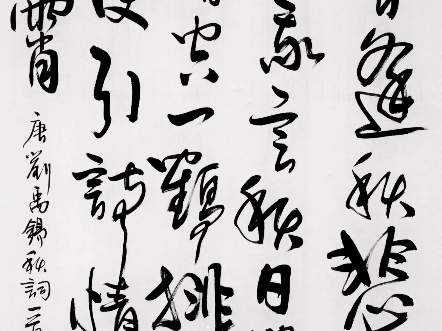 逢秋悲
我言秋日
空一鶴排
便引詩情
霄
唐劉禹錫秋詞一首